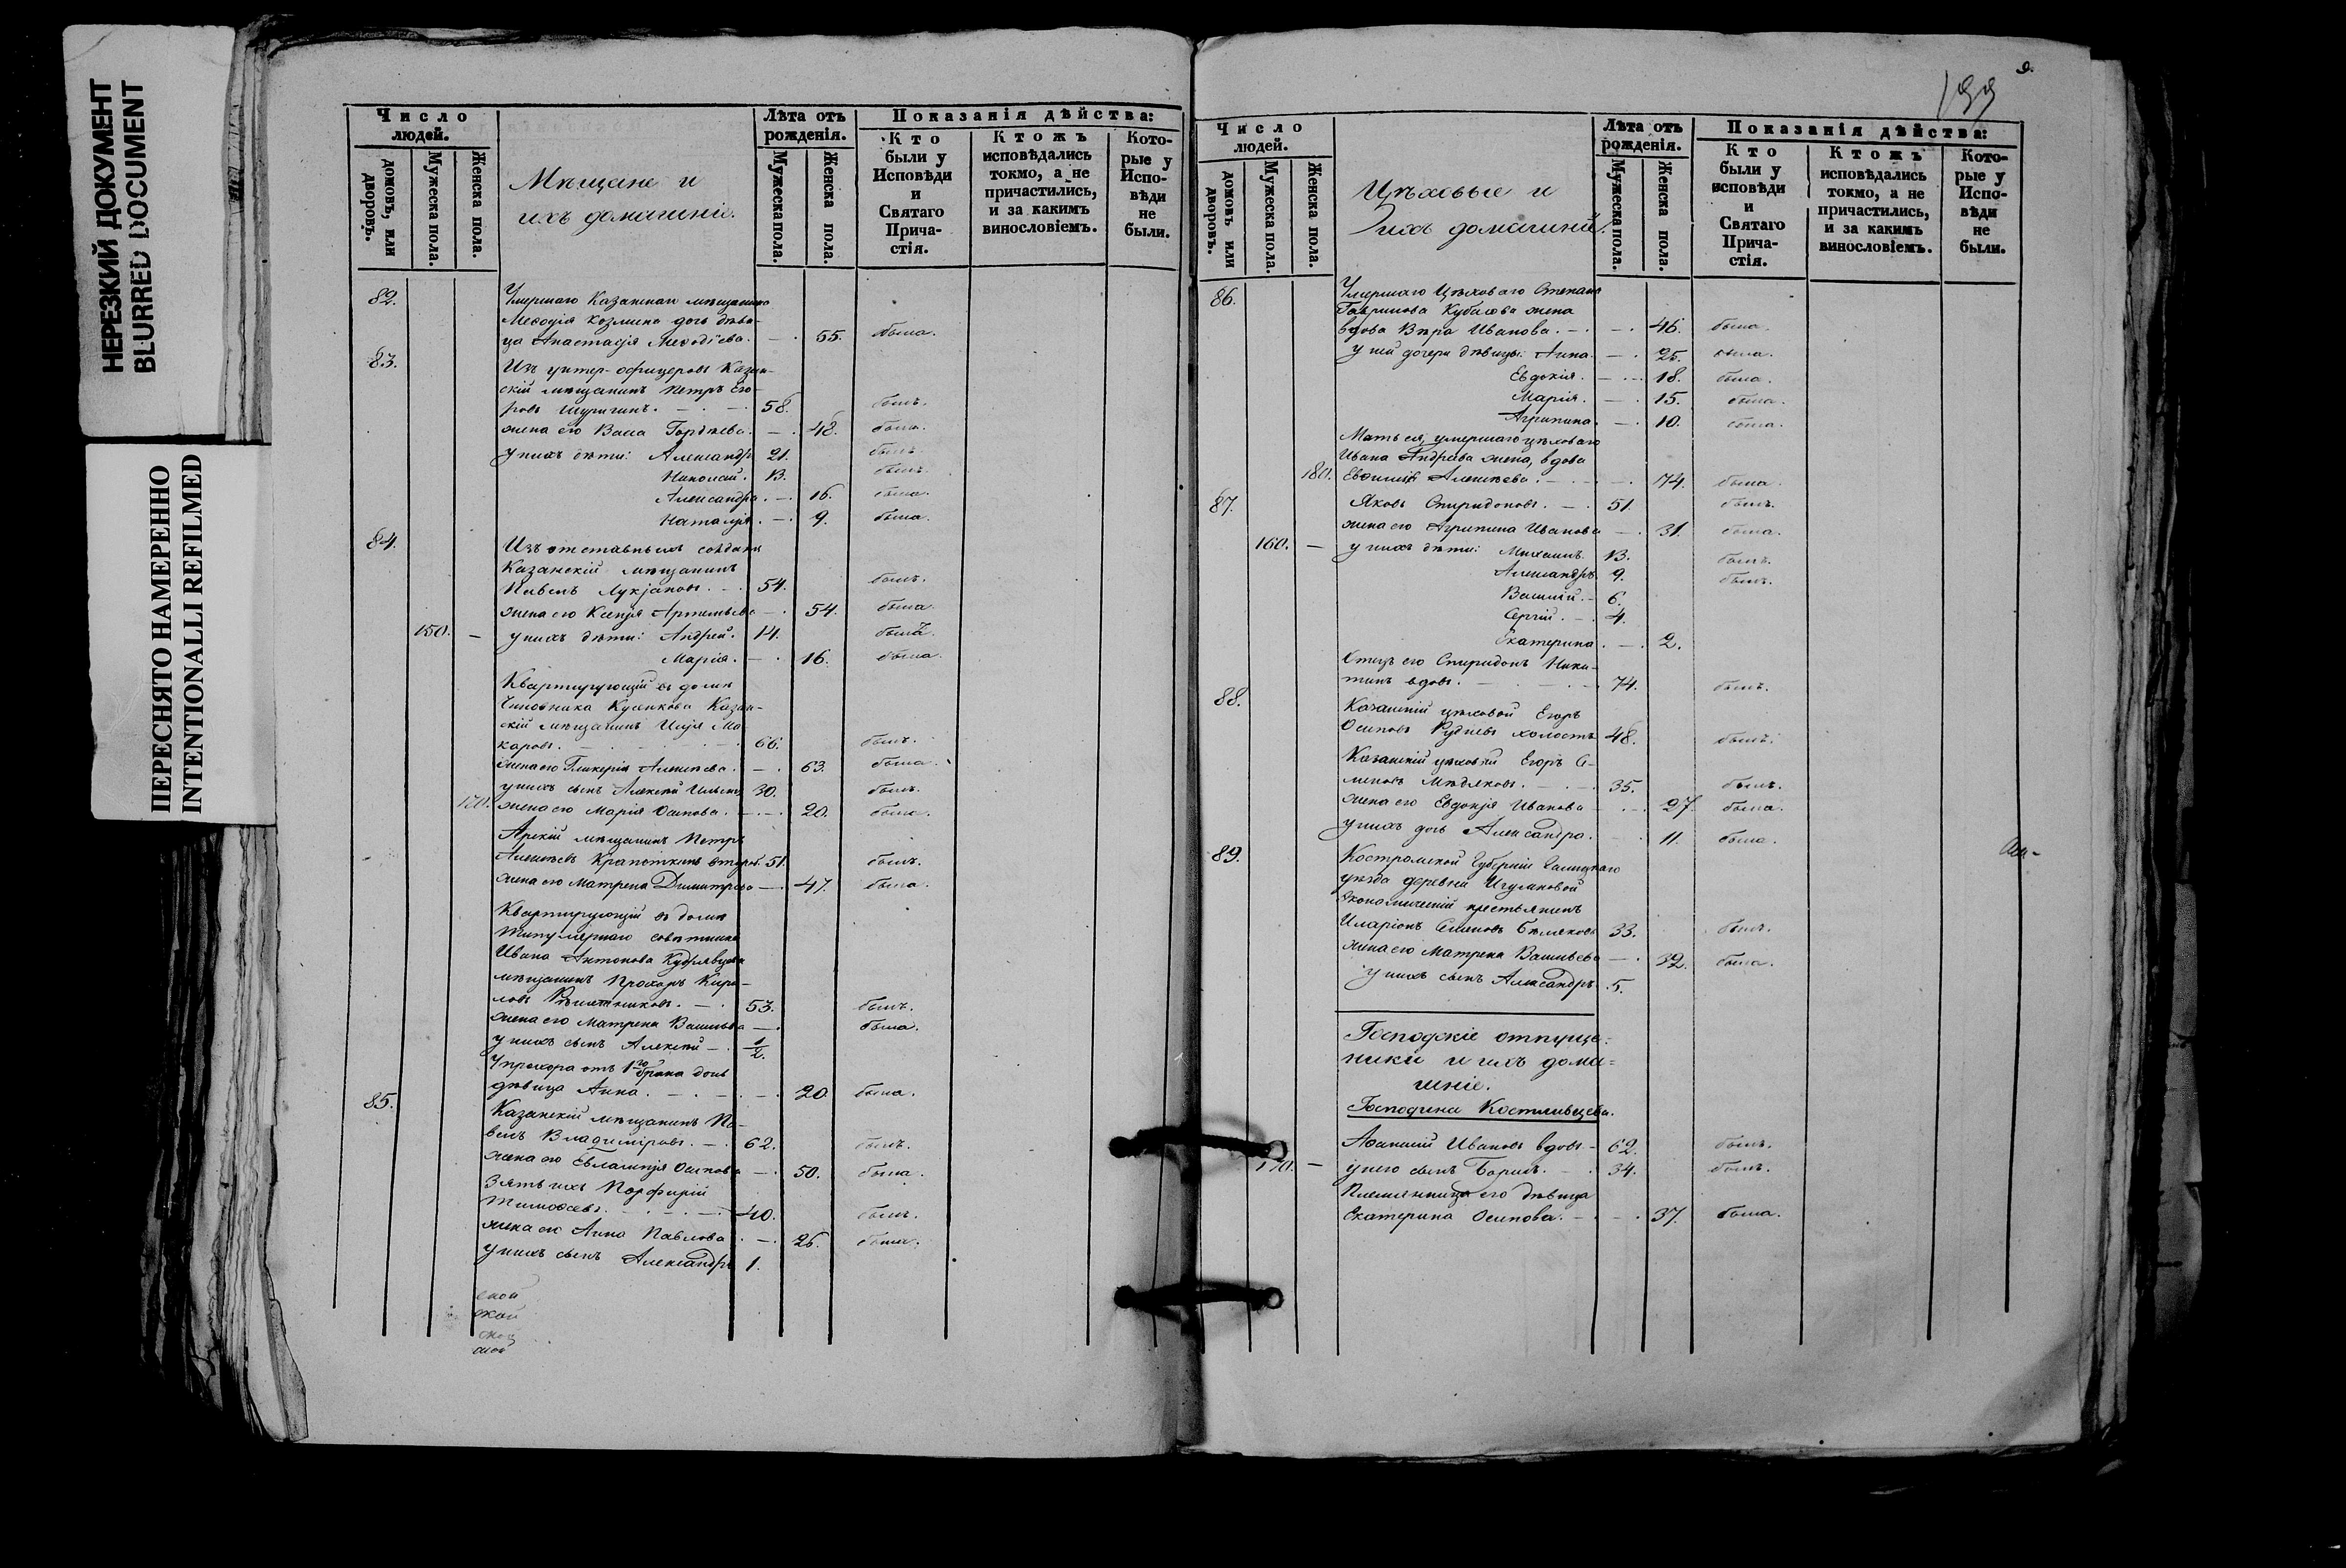 НЕРЕЗКИЙ ДОКУМЕНТ
BLURRED DOCUMENT
ПЕРЕСНЯТО НАМЕРЕННО
INTENTIONALLI REFILMED
Число людей.
домовъ, или дворовъ.
Мужеска пола.
Женска пола.
Мѣщане и
ихъ домашніе.
Лѣта отъ рожденія.
Мужеска пола.
Женска пола.
Показанія дѣйства:
Кто были у Исповѣди и Святаго Прича-стія.
Ктожъ исповѣдались токмо, а не причастились, и за какимъ винословіемъ.
Кото-рые у Испо-вѣди не были.
82. Умершаго Казанскаго мѣщанина
Меѳодія Козмина дочь дѣви-
ца Анастасія Меѳодіева. 55. была.
83. Изъ унтер-офицеровъ Казан-
скій мѣщанинъ Петръ Его-
ровъ Шуригинъ. 58. былъ.
жена его Васса Гордѣева. 48. была.
у нихъ дѣти: Александръ 21. былъ.
Николай. 13. былъ.
Александра. 16. была.
Наталія. 9. была.
84. Изъ отставныхъ солдатъ
Казанскій мѣщанинъ
Павелъ Лукіановъ. 54. былъ.
жена его Ксенія Артемьева 54. была.
150. у нихъ дѣти: Андрей. 14. былъ.
Марія. 16. была.
Квартирующій въ домѣ
Чиновника Казан-
скій мѣщанинъ Илія Ма-
каровъ. 66. былъ.
жена его Гликерія Алексѣева. 63. была.
у нихъ сынъ Алексѣй Ильинъ 30. былъ.
170. жена его Марія Осипова. 20. была.
Арскій мѣщанинъ Петръ
Алексѣевъ второй. 51. былъ.
жена его Матрена Димитріева 47. была.
Квартирующій въ домѣ
титулярнаго совѣтника
Ивана Антонова Кудрявцева
мѣщанинъ Прохоръ Кири-
ловъ 53. былъ.
жена его Матрена Васильева была.
у нихъ сынъ Алексѣй 1/2.
У прохора отъ 1го брака дочь
дѣвица Анна. 20. была.
85. Казанскій мѣщанинъ Па-
велъ Владиміровъ. 62. былъ.
жена его Евлампія Осипова 50. была.
Зять ихъ Порфирій
Тимоѳеевъ. 40. былъ.
жена его Анна Павлова 26. была.
у нихъ сынъ Александръ 1.
9.
Число людей.
домовъ или дворовъ.
Мужеска пола.
Женска пола.
Цѣховые и
ихъ домашніе.
Лѣта отъ рожденія.
Мужеска пола.
Женска пола.
Показанія дѣйства:
Кто были у исповѣди и Святаго Прича-стія.
Ктожъ исповѣдались токмо, а не причастились, и за какимъ винословіемъ.
Кото-рые у Испо-вѣди не были.
86. Умершаго Цѣховаго Степана
Гаврилова жена
вдова Вѣра Иванова. 46. была.
у ней дочери дѣвицы: Анна. 25. была.
Евдокія. 18. была.
Марія. 15. была.
Агрипина. 10. была.
Мать ея, умершаго цѣховаго
Ивана Андреева жена, вдова
180. Евфимія Алексѣева. 74. была.
87. Яковъ Спиридоновъ. 51. былъ.
жена его Агрипина Иванова 31. была.
160. у нихъ дѣти: Михаилъ. 13. былъ.
Александръ. 9. былъ.
Василій. 6.
Сергій. 4.
Екатерина. 2.
Отецъ его Спиридонъ Ники-
тинъ вдовъ. 74. былъ.
88. Казанскій цѣховой Егоръ
Осиповъ Рудневъ холостъ 48. былъ.
Казанскій цѣховой Егоръ Се-
меновъ Медяковъ. 35. былъ.
жена его Евдокія Иванова 27. была.
у нихъ дочь Александра. 11. была.
89. Костромской Губерніи Галицкаго
уѣзда деревни Игумновой
экономическій крестьянинъ
Иларіонъ Семеновъ Бѣляковъ 33. былъ.
жена его Матрена Васильева 32. была.
у нихъ сынъ Александръ. 5.
Господскіе отпуще-
ники и ихъ дома-
шніе.
Господина Костливцева.
Аѳанасій Ивановъ вдовъ 62. былъ.
170. у него сынъ Борисъ. 34. былъ.
Племянница его дѣвица
Екатерина Осипова. 37. была.